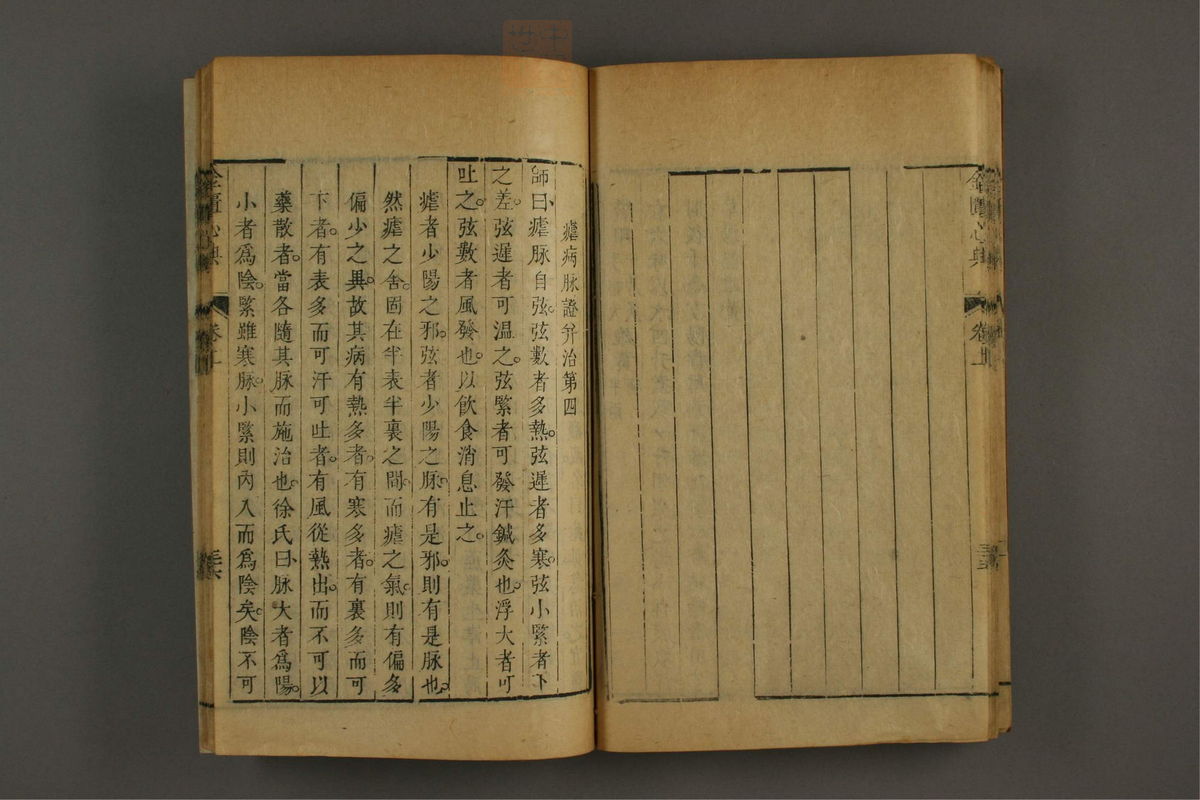 金匱心典
卷上
瘧病脉證并治第四
師曰瘧脉自弦弦數者多熱弦遲者多寒弦小緊者下
之差弦遲者可温之弦緊者可發汗鍼灸也浮大者可
吐之弦數者風發也以飲食消息止之
瘧者少陽之邪弦者少陽之脉有是邪則有是脉也
然瘧之舍固在半表半裏之間而瘧之氣則有偏多
偏少之異故其病有熱多者有寒多者有裏多而可
下者有表多而可汗可吐者有風從熱出而不可以
藥散者當各隨其脉而施治也徐氏曰脉大者爲陽
小者爲陰緊雖寒脉小緊則內入而爲陰矣陰不可
金匱心典
卷上
三六